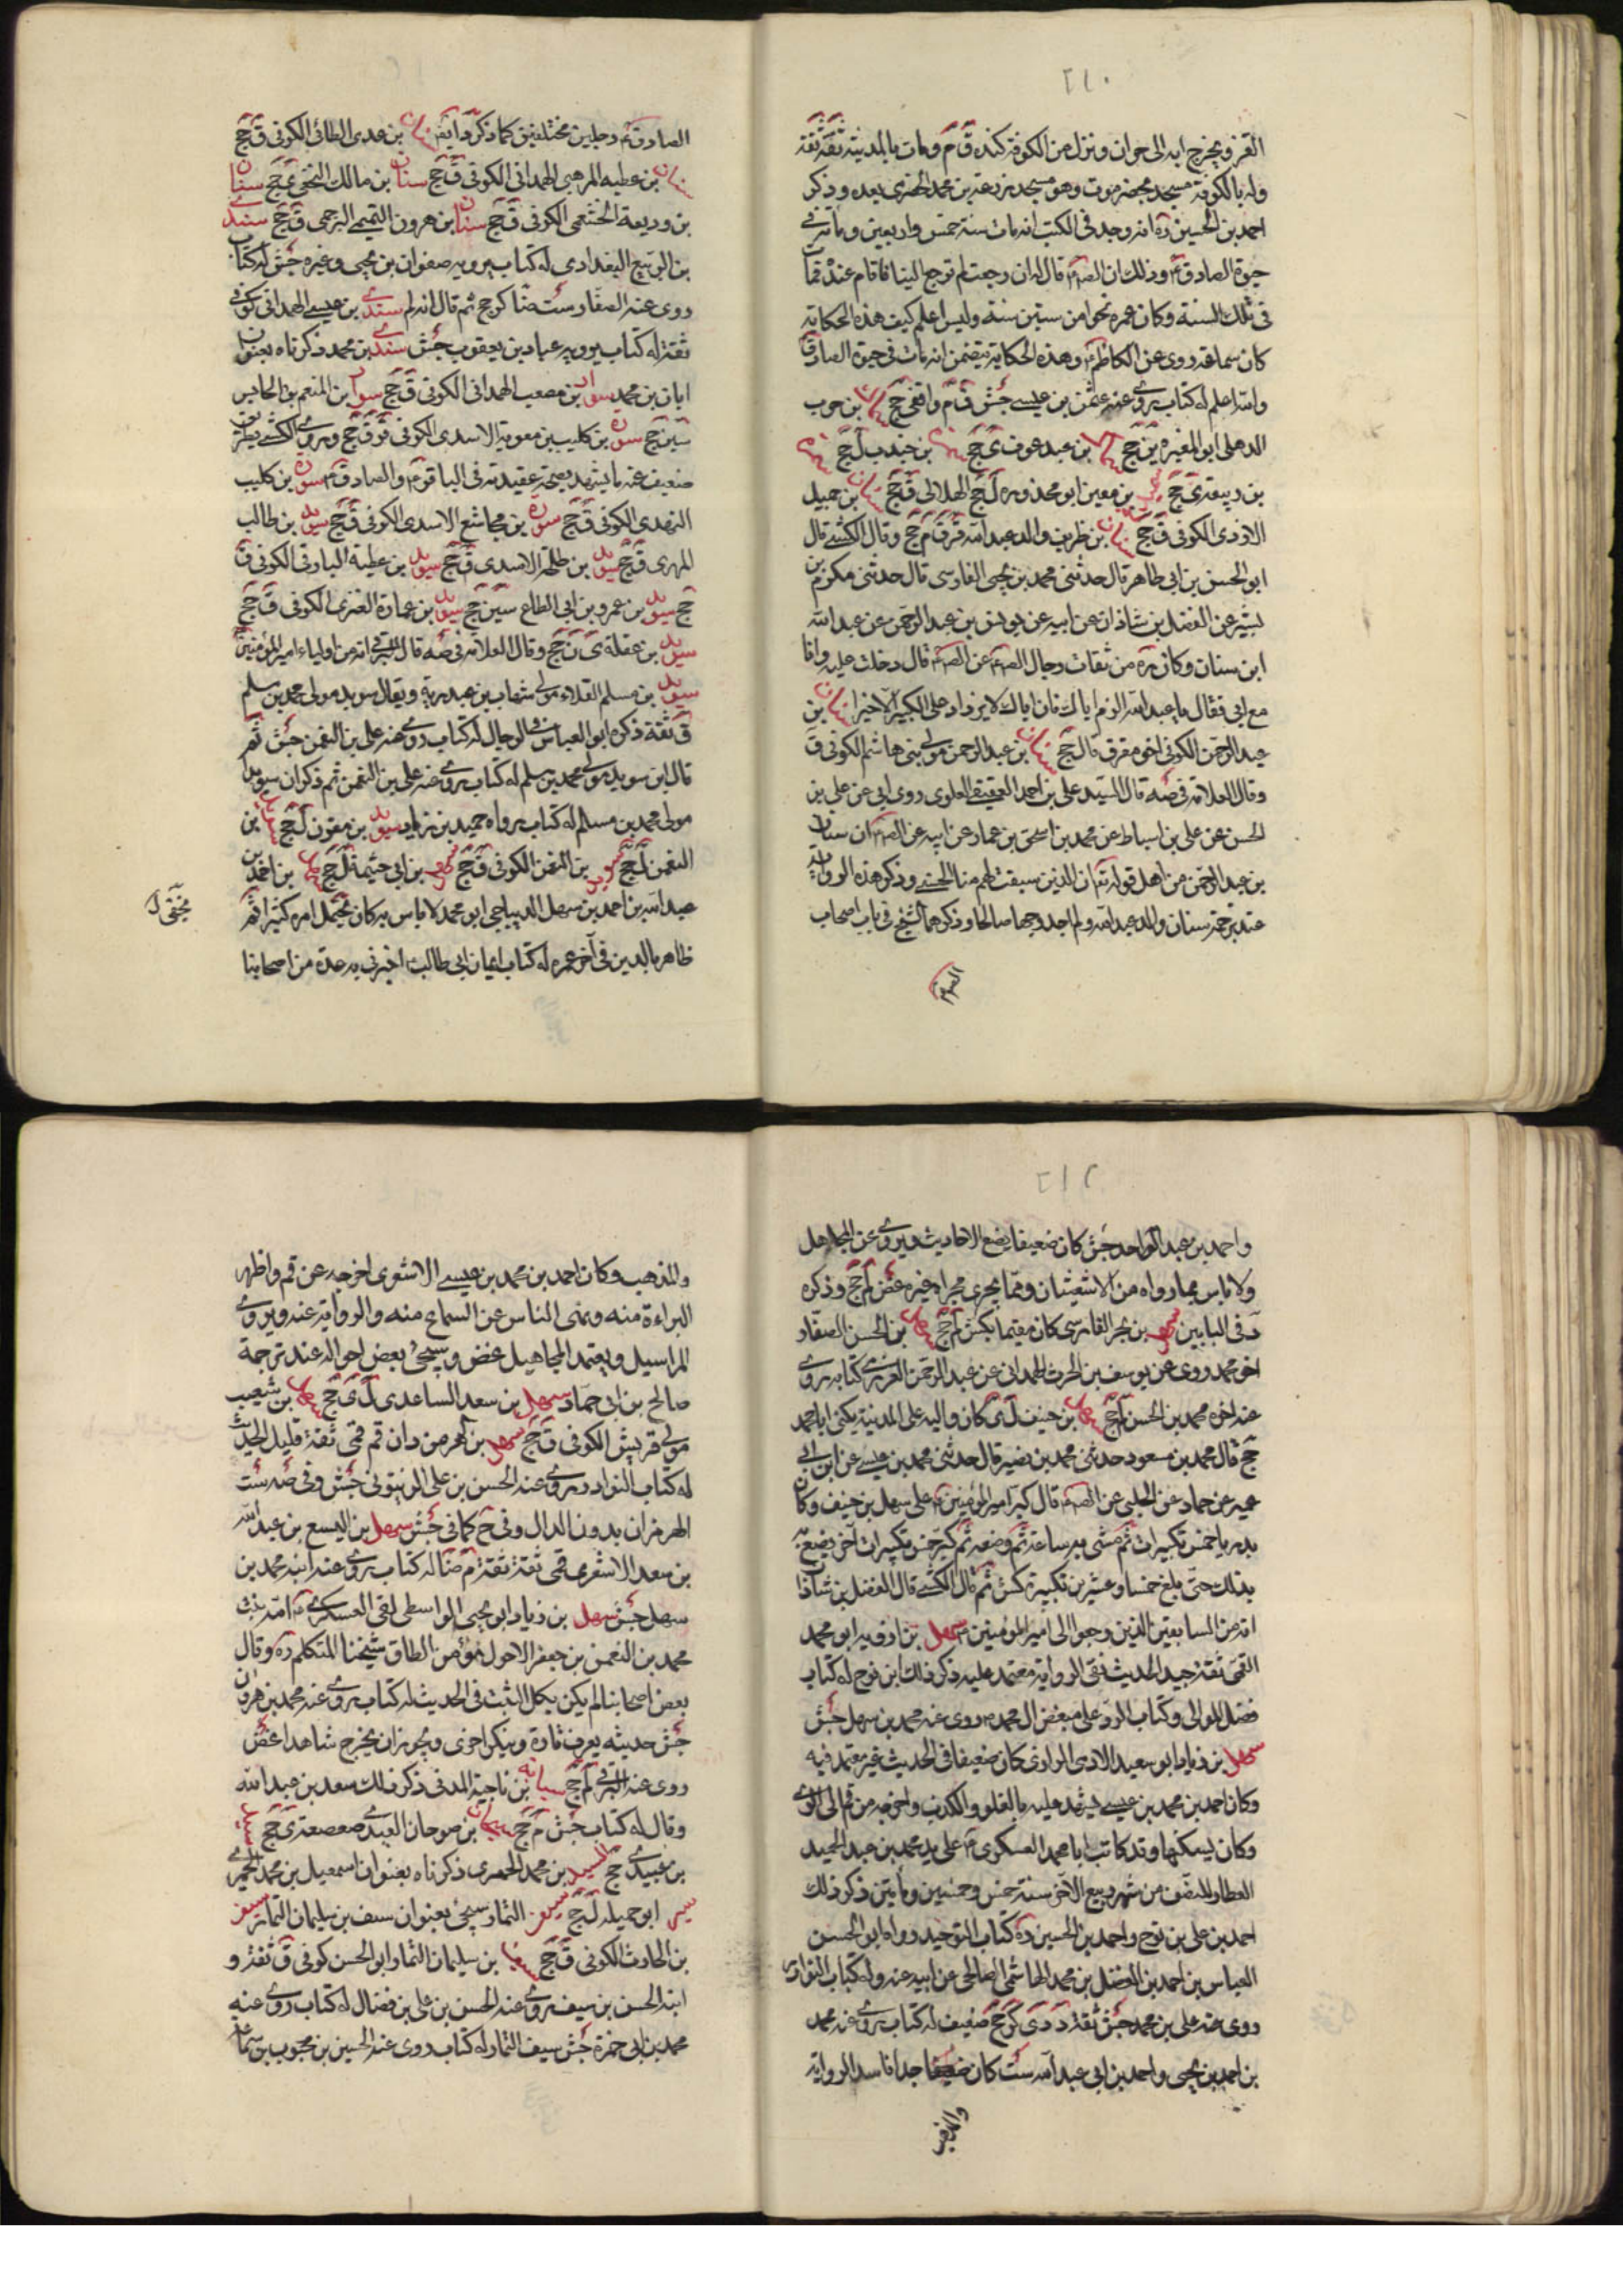 ٢١٠
القز ويخرج به الى حران ونزل من الكوفة كنده ق م ومات بالمدينة ثقة ثقة
وله بالكوفة مسجد بحضرموت وهو مسجد زرعة بن محمد الحضرمى بعده وذكر
احمد بن الحسين ره انه وجد فى الكتب انه مات سنة خمس واربعين ومائة فى
حيوة الصادق ع وذلك ان قال له ان رجعت لم ترجع الينا فاقام عنده فمات
فى تلك السنة وكان عمره نحوا من ستين سنة وليس اعلم كيف هذه الحكاية
كان سماعة روى عن الكاظم ع وهذه الحكاية يتضمن انه مات فى حيوة الصادق
والله اعلم له كتاب يروى عنه عثمن بن عيسى جش ق م واقفى جج سماك بن حرب
الذهلى ابو المغيرة ين جج بن عبد عوف ى جج بن جندب ل جج
بن ربيعة ى جج بن معين ابو محذوره ل جج الهلالى ق جج سنان بن جميل
الاودى الكوفى ق جج سنان بن طريف والد عبد الله قر ق م جج وقال الكشى قال
ابو الحسن بن ابى طاهر قال حدثنى محمد بن يحيى الفارسى قال حدثنى مكرم بن
بشير عن الفضل بن شاذان عن ابيه عن يونس بن عبد الرحمن عن عبد الله
ابن سنان وكان ره من ثقات رجال عن قال دخلت عليه وانا
مع ابى فقال يا عبد الله الزم اباك فان اباك لا يزداد على الكبر الا خيرا سنان بن
عبد الرحمن الكوفى اخو مقرن قال جج سنان بن عبد الرحمن مولى بنى هاشم الكوفى ق
وقال العلامة فى صه قال السيد على بن احمد العقيقى العلوى روى ابى عن على بن
الحسن عن على بن اسباط عن محمد بن اسحق بن عمار عن ابيه عن ان سنان
بن عبد الرحمن من اهل قوله تع ان الذين سبقت لهم منا الحسنى وذكر هذه الرواية
عند ترجمة سنان والد عبد الله ولم اجد وجها صالحا وذكرهما الشيخ فى باب اصحاب
الصادق ع رجلين مختلفين كما ذكرنا سنان بن عدى الطائى الكوفى ق جج
سنان بن عطيه المرهبى الهمدانى الكوفى ق جج سنان بن مالك النخعى ى جج سنان
بن وديعة الخثعمى الكوفى ق جج سنان بن هرون التميمى البرجمى ق جج سندى
بن الربيع البغدادى له كتاب يرويه صفوان بن يحيى وغيره جش له كتاب
روى عنه الصفار ست ضا كر جج ثم قال انه لم سندى بن عيسى الهمدانى كوفى
ثقة له كتاب يرويه عباد بن يعقوب جش سندى بن محمد ذكرناه بعنوان
ابان بن محمد سوار بن مصعب الهمدانى الكوفى ق جج سوار بن المنعم بن الحابس
سين جج سورة بن كليب بن معوية الاسدى الكوفى قر ق جج وروى الكشى بطريق
ضعيف عنه ما يشهد بصحة عقيدته فى الباقر ع والصادق ع سورة بن كليب
النهدى الكوفى ق جج سورة بن مجاشع الاسدى الكوفى ق جج سويد بن طالب
المهرى ق جج سويد بن طلحة الاسدى ق جج سويد بن عطية البارقى الكوفى ق
جج سويد بن عمرو بن ابى المطاع سين جج سويد بن عمارة العنزى الكوفى ق جج
سويد بن غفلة ى ن جج وقال العلامة فى صه قال البرقى انه من اولياء امير المؤمنين ع
سويد بن مسلم القلاء مولى شهاب بن عبد ربه ويقال سويد مولى محمد بن مسلم
ق ثقة ذكره ابو العباس فى الرجال له كتاب روى عنه على بن النعمن جش ثم
قال ابن سويد مولى محمد بن مسلم له كتاب يروى عنه على بن النعمن ثم ذكر ان سويد
مولى محمد بن مسلم له كتاب رواه حميد بن زياد سويد بن مقرن ل جج بن
النعمن ل جج بن النعمن الكوفى ق جج سهل بن ابى حثيمة ل جج سهل بن احمد بن
عبد الله بن احمد بن سهل الديباجى ابو محمد لا باس به كان يخفى امره كثيرا ثم
ظاهر بالدين فى آخر عمره له كتاب ايمان ابى طالب ع اخبرنى به عدة من اصحابنا
يخفى ل
٢١٢
واحمد بن عبد الواحد جش كان ضعيفا يضع الاحاديث ويروى عن المجاهيل
ولا باس بما رواه من الاشعثيات وما يجرى مجراه غيره غض لم جج وذكره
د فى البابين سهل بن بحر الفارسى كان مقيما بكش لم جج سهل بن الحسن الصفار
اخو محمد روى عن يوسف بن الحرث الهمدانى عن عبد الرحمن العرزمى كتابه روى
عنه اخوه محمد بن الحسن لم جج سهل بن حنيف ل ى كان واليه على المدينة يكنى ابا محمد
جج قال محمد بن مسعود حدثنى محمد بن نصير قال حدثنى محمد بن عيسى عن ابن ابى
عمير عن حماد عن الحلبى عن قال كبر امير المؤمنين ع على سهل بن حنيف وكان
بدريا خمس تكبيرات ثم مشى به ساعة ثم وضعه ثم كبر خمس تكبيرات اخر يصنع به
بذلك حتى بلغ خمسا وعشرين تكبيرة كش ثم قال الكشى قال الفضل بن شاذان
انه من السابقين الذين رجعوا الى امير المؤمنين ع سهل بن زاذويه ابو محمد
القمى ثقة جيد الحديث نقى الرواية معتمد عليه ذكر ذلك ابن نوح له كتاب
فضل الموالى وكتاب الرد على مبغضى ال محمد ع روى عنه محمد بن سهل جش
سهل بن زياد ابو سعيد الادمى الرازى كان ضعيفا فى الحديث غير معتمد فيه
وكان احمد بن محمد بن عيسى يشهد عليه بالغلو والكذب واخرجه من قم الى الرى
وكان يسكنها وقد كاتب ابا محمد العسكرى ع على يد محمد بن عبد الحميد
العطار للنصف من شهر ربيع الاخر سنة خمس وخمسين ومأتين ذكر ذلك
احمد بن على بن نوح واحمد بن الحسين ره كتاب التوحيد رواه ابو الحسن
العباس بن احمد بن الفضل بن محمد الهاشمى الصالحى عن ابيه عنه وله كتاب النوادر
روى عنه على بن محمد جش ثقة د دى كر جج ضعيف له كتاب يروى عنه محمد
بن احمد بن يحيى واحمد بن ابى عبد الله ست كان ضعيفا جدا فاسد الرواية
والمذهب
والمذهب وكان احمد بن محمد بن عيسى الاشعرى اخرجه عن قم واظهر
البراءة منه ونهى الناس عن السماع منه والرواية عنه ويروى
المراسيل ويعتمد المجاهيل غض وسيجئ بعض احواله عند ترجمة
صالح بن ابى حماد سهل بن سعد الساعدى ل ى جج سهل بن شعيب
مولى قريش الكوفى ق جج سهل بن الهرمزدان قم قمى ثقة قليل الحديث
له كتاب النوادر يروى عنه الحسن بن على الزيتونى جش وفى صه ست
الهرمزان بدون الدال وفى ح كما فى جش سهل بن اليسع بن عبد الله
بن سعد الاشعرى قمى ثقة ثقة م ضا له كتاب يروى عنه ابنه محمد بن
سهل جش سهل بن زياد ابو يحيى الواسطى لقى العسكرى ع امه بنت
محمد بن النعمن بن جعفر الاحول مؤمن الطاق شيخنا المتكلم ره وقال
بعض اصحابنا لم يكن بكل الثبت فى الحديث له كتاب يروى عنه محمد بن هرون
جش حديثه يعرف تارة وينكر اخرى ويجوز ان يخرج شاهدا غض
روى عنه البرقى لم جج سيابه بن ناجية المدنى ذكر ذلك سعد بن عبد الله
وقال له كتاب جش م جج بن صوحان العبدى صعصعة ى جج
بن معبد ى جج السيد بن محمد الحميرى ذكرناه بعنوان اسمعيل بن محمد الحميرى
ابو جميله ل جج سيف التمار سيجئ بعنوان سيف بن سليمان التمار سيف
بن الحارث الكوفى ق جج سيف بن سليمان التمار ابو الحسن كوفى ق ثقة و
ابنه الحسن بن سيف يروى عنه الحسن بن على بن فضال له كتاب روى عنه
محمد بن ابى حمزة جش سيف التمار له كتاب روى عنه الحسين بن محبوب بن سماعة